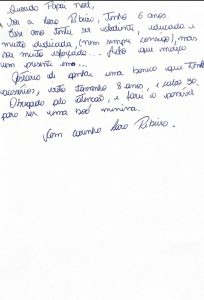 Querido Papai noel,
Sou a Lara Ribeiro, tenho 6 anos
Esse ano tentei ser obediente, educada e
muito dedicada (nem sempre consigo), mas
sou muito esforçada... Acho que mereço
um presente né...
Gostaria de ganhar uma boneca que tenha
acessórios, visto tamanho 8 anos, e calço 30.
Obrigada pela atenção, e farei o possível
para ser uma boa menina.
Com carinho Lara Ribeiro.